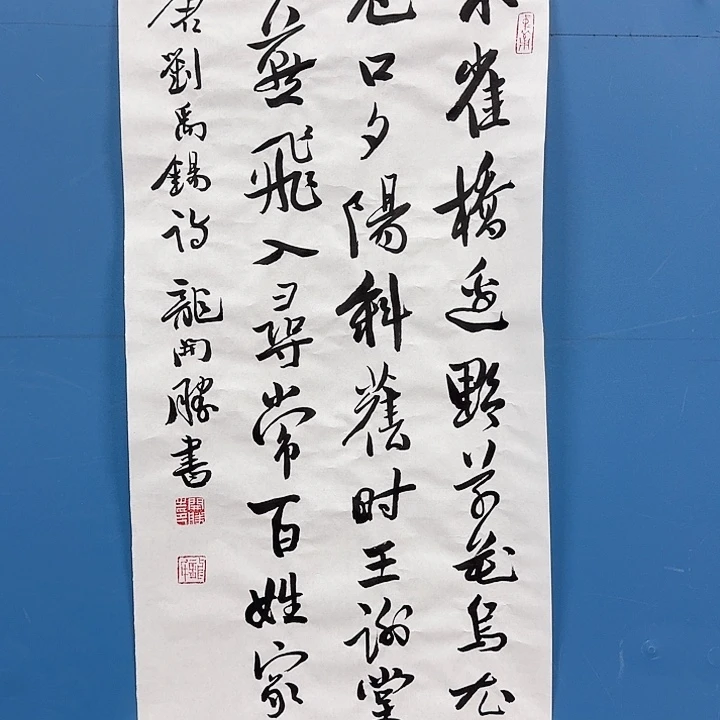 朱雀橋邊野草花烏衣
巷口夕陽斜舊时王謝堂
燕飛入尋常百姓家
唐劉禹錫詩 龍開勝書